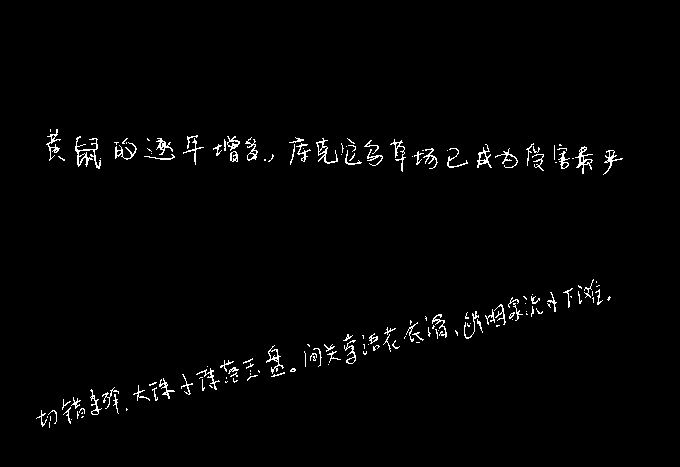 黄鼠的逐年增多，库克草场已成为受害最严
切错杂弹，大珠小珠落玉盘。间关莺语花底滑、幽咽泉流水下滩。